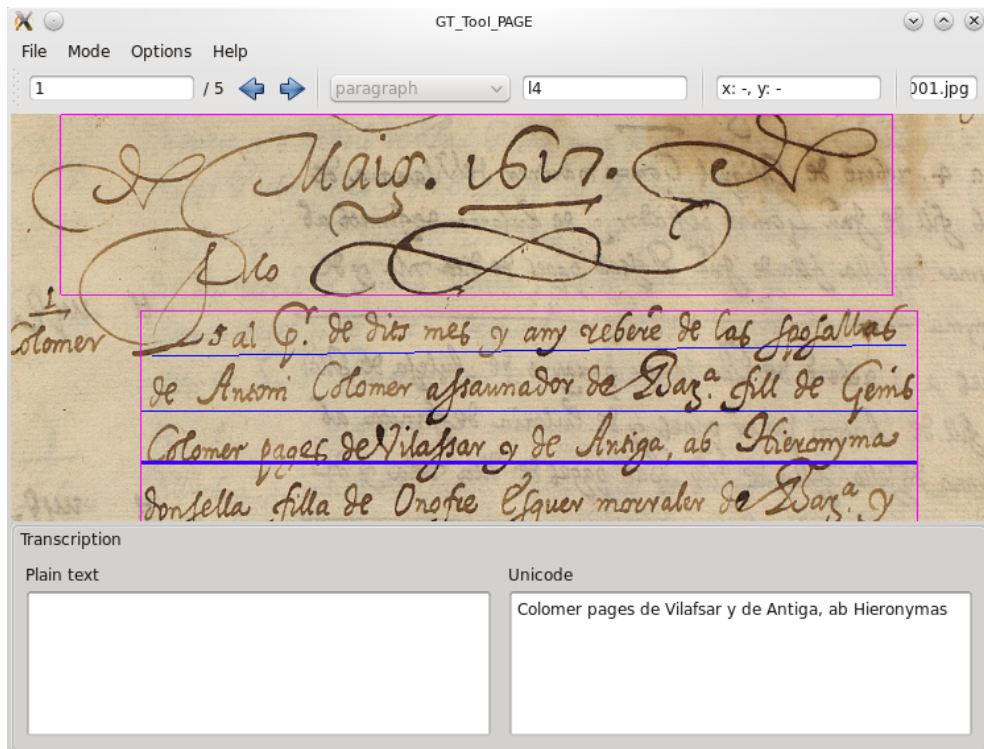 GT_Tool_PAGE
File Mode Options Help
1 / 5 paragraph l4 x: -, y: - 001.jpg
Maig. 1617.
1
Colomer
al de dits mes y any rebere de las sposallas
de Antoni Colomer assaunador de Barª. fill de Genis
Colomer pages de Vilassar y de Antiga, ab Hieronyma
donsella filla de Onofre Esquer morraler de Barª. y
Transcription
Plain text Unicode
Colomer pages de Vilafsar y de Antiga, ab Hieronymas